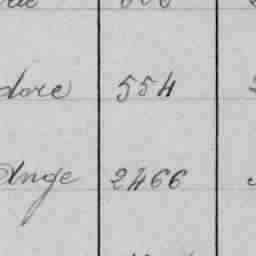 dore 554
Ange 2466